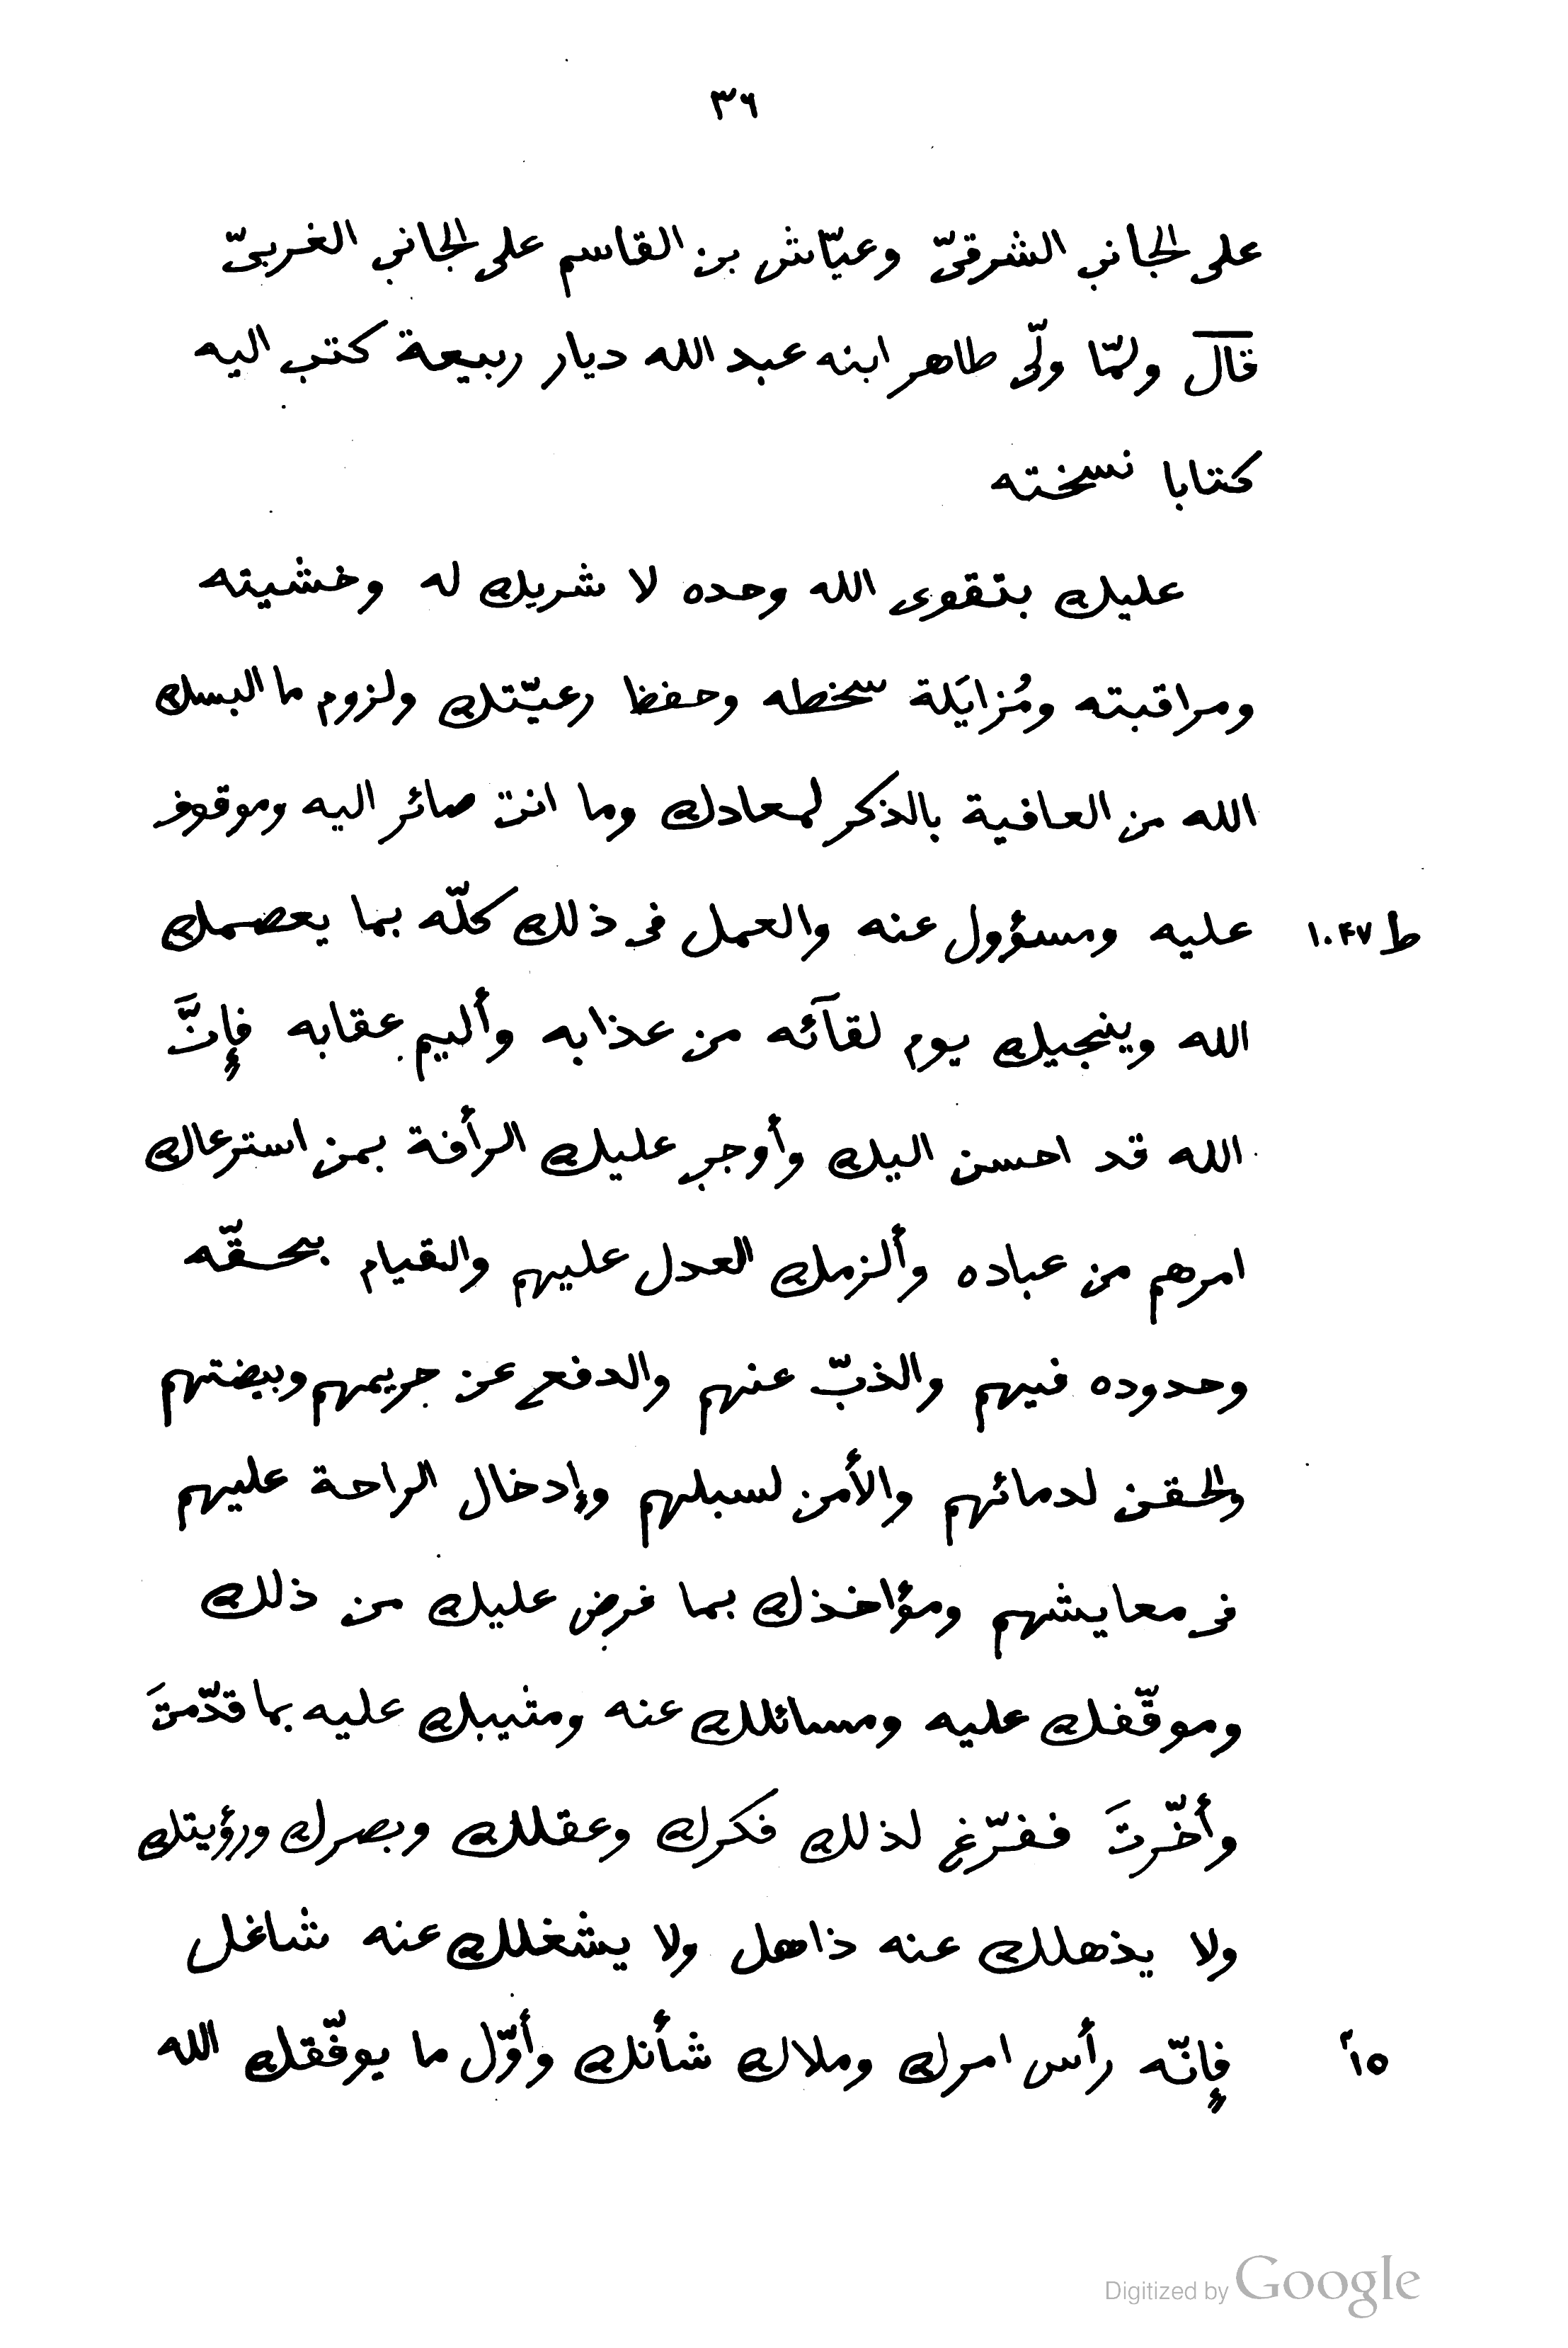 ٣٦
على الجانب الشرقىّ وعيّاش بن القاسم على الجانب الغربىّ
قال ولمّا ولّى طاهر ابنه عبد الله ديار ربيعة كتب اليه
كتابا نسخته
عليك بتقوى الله وحده لا شريك له وخشيته
ومراقبته ومُزايَلة سخطه وحفظ رعيّتك ولزوم ما البسك
الله من العافية بالذكر لمعادك وما انت صائر اليه وموقوف
عليه ومسؤول عنه والعمل فى ذلك كلّه بما يعصمك ط ١٠٤٧
الله وينجيك يوم لقآئه من عذابه وأليم عقابه فإنَّ
الله قد احسن اليك وأوجب عليك الرأفة بمن استرعاك
امرهم من عباده وألزمك العدل عليهم والقيام بحقّه
وحدوده فيهم والذبّ عنهم والدفع عن حريمهم وبيضتهم
والحقن لدمائهم والأمن لسبلهم وإدخال الراحة عليهم
فى معايشهم ومؤاخذك بما فرض عليك من ذلك
وموقّفك عليه ومسائلك عنه ومثيبك عليه بما قدّمتَ
وأخّرتَ ففرّغ لذلك فكرك وعقلك وبصرك ورؤيتك
ولا يذهلك عنه ذاهل ولا يشغلك عنه شاغل
فإنّه رأس امرك وملاك شأنك وأوّل ما يوفّقك الله
Digitized by Google